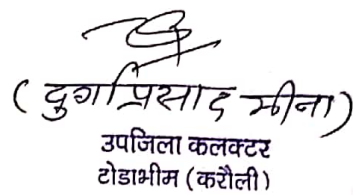 (दुर्गाप्रसाद मीना)
उपजिला कलक्टर
टोडाभीम (करौली)